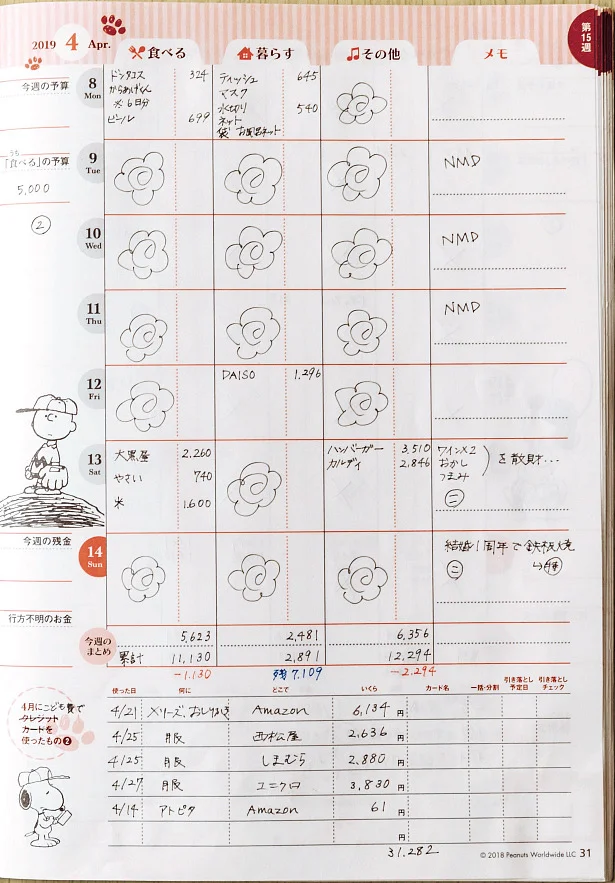 2019 4 Apr.
食べる 暮らす その他 メモ
第15週
今週の予算
8 Mon
ドンタコス 324
からあげくん
※6日分
ビール 699
ティッシュ 645
マスク
水切り 540
ネット
袋 お風呂ネット
「食べる」の予算
うち
5,000
②
9 Tue
NMD
10 Wed
NMD
11 Thu
NMD
12 Fri
DAISO 1,296
13 Sat
大黒屋 2,260
やさい 740
米 1,600
ハンバーガー 3,510
カルディ 2,846
ワイン×2
おかし
つまみ
を散財...
㊁
今週の残金
14 Sun
結婚1周年で鉄板焼
㊁
行方不明のお金
今週のまとめ
5,623 2,481 6,356
累計 11,130 2,891 12,294
-1,130 残7,109 -2,294
使った日 何に どこで いくら カード名 一括・分割 引き落とし予定日 引き落としチェック
4月にこども費で
クレジット
カードを
使ったもの❷
4/21 メリーズ、おしりふき Amazon 6,134 円
4/25 服 西松屋 2,636 円
4/25 服 しまむら 2,880 円
4/27 服 ユニクロ 3,830 円
4/14 アトピタ Amazon 61 円
円
31,282
© 2018 Peanuts Worldwide LLC 31